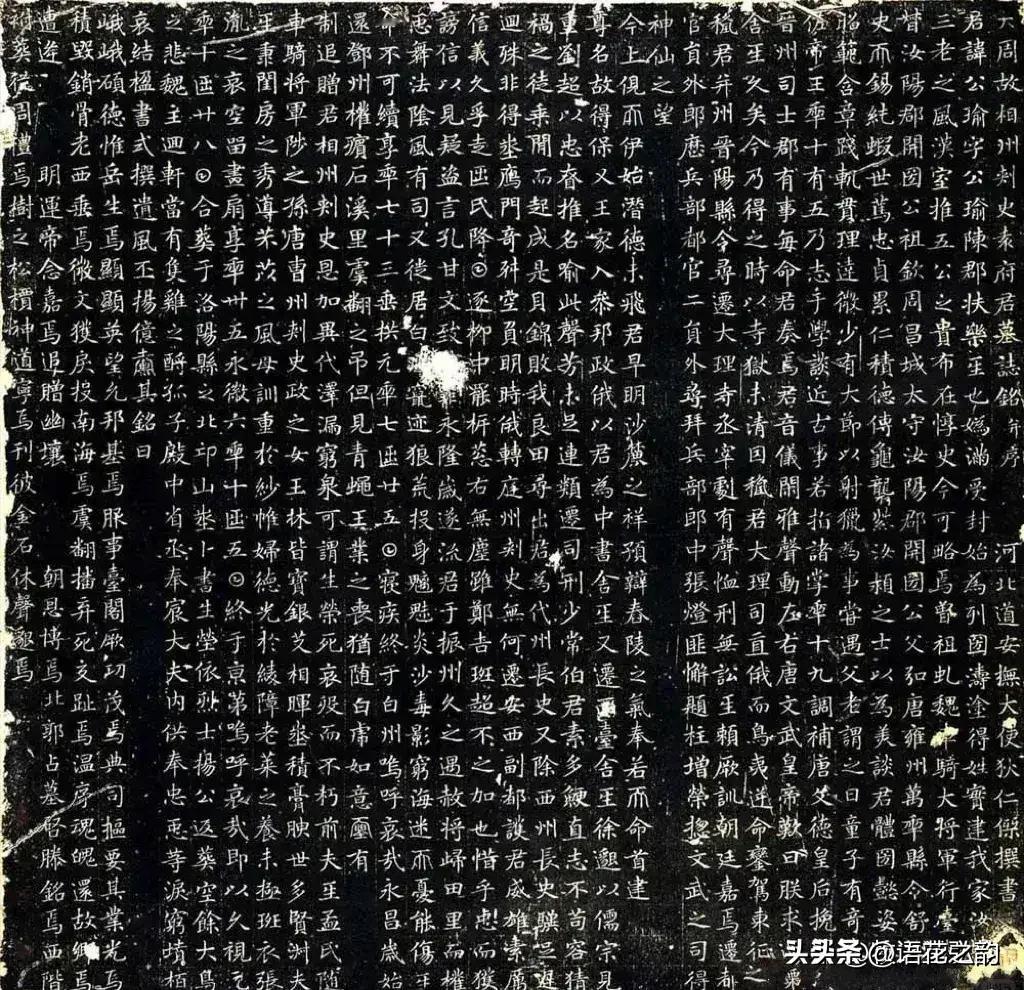 大周故相州刾史袁府君墓誌銘并序 河北道安撫大使狄仁傑撰書
君諱公瑜字公瑜陳郡扶樂𤯔也媯滿受封始為列圀濤塗得姓實建我家汝
三老之風漢室推五公之貴布在惇史今可略焉曾祖虬魏車騎大將軍行臺
汝陽郡開圀公祖欽周昌城太守汝陽郡開圀公父弘唐雍州萬𠡦縣令舒
史而錫純嘏世篤忠貞累仁積德傳龜襲紫汝潁之士以為美談君體圀懿姿
昭範含章踐軌貫理達微少有大節以射獵為事嘗遇父老謂之曰童子有奇
佐帝王𠡦十有五乃志乎學談近古事若指諸掌𠡦十九調補唐文德皇后挽
晉州司士郡有事每命君奏焉君音儀閑雅聲動左右唐文武皇帝歎曰朕求
舍𤯔久矣今乃得之時以寺獄未清因授君大理司直俄而鳥夷逆命鑾駕東征
授君并州晉陽縣令尋遷大理寺丞宰劇有聲恤刑無訟𤯔賴厥訓朝廷嘉焉遷都
官員外郎歷兵部都官二員外尋拜兵部郎中張燈匪懈題柱增榮揔文武之司得
神仙之望
今上俔而伊始潛德未飛君早明沙麓之祥預辯春陵之氣奉若而命首建
尊名故得保乂王家入叅邦政俄以君為中書舍𤯔又遷西臺舍𤯔徐邈以儒宗見
重劉超以忠昚推名喻此聲芳未足連類遷司刑少常伯君素多鯁直志不苟容猜
禍之徒乘閒而起成是貝錦敗我良田尋出君為代州長史又除西州長史驥足遲
迴殊非得埊鷹門奇舛空員明時俄轉庭州刾史無何遷安西副都護君威雄素厲
信義久孚走𠥱氏降𡆠逐柳中罷柝蔥右無塵雖鄭吉班超不之加也惜乎忠而獲
謗信以見疑盜言孔甘文致 永隆歲遂流君于振州久之遇赦將歸田里而權
𢘑舞法陰風有司又徙居白州 迹狼荒投身魑魅炎沙毒影窮海迷而憂能傷𤯔
命不可續享𠡦七十三垂拱元𠡦七𠥱廿五𡆠寢疾終于白州嗚呼哀哉永昌歲始
還鄧州權殯石溪里虞翻之弔但見青蠅王業之喪猶随白虎如意𡔈有
制追贈君相州刾史恩加異代澤漏窮泉可謂生榮死哀歿而不朽前夫𤯔孟氏隨
車騎將軍陟之孫唐曹州刾史政之女玉林皆寶銀艾相暉埊積膏腴世多賢淑夫
𤯔秉閨房之秀導芣苡之風母訓重於紗帷婦德光於綾障老萊之養未極班衣張
胤之哀空留畫扇享𠡦卅五永徽六𠡦十𠥱五𡆠終于京第嗚呼哀哉即以久視元
𠡦十𠥱廿八𡆠合葬于洛陽縣之北邙山埊卜書生塋依烈士揚公返葬空餘大鳥
之悲魏主迴軒當有隻雞之酹孤子殿中省丞奉宸大夫內供奉忠𢘑等淚窮墳栢
哀結楹書式撰遺風丕揚億𠡦其銘曰
峨峨碩德惟岳生焉顯顯英望允邦基焉服事臺閣厥功茂焉典司樞要其業光焉
積毀銷骨老西垂焉微文獲戾投南海焉虞翻播弃死交趾焉溫序魂魄還故鄉焉
遭逢 明運帝念嘉焉追贈幽壤 朝恩博焉北郭占墓啓滕銘焉西階
祔葬從周禮焉樹之松檟神道寧焉刊彼金石休聲邈焉
头头条@语花之韵